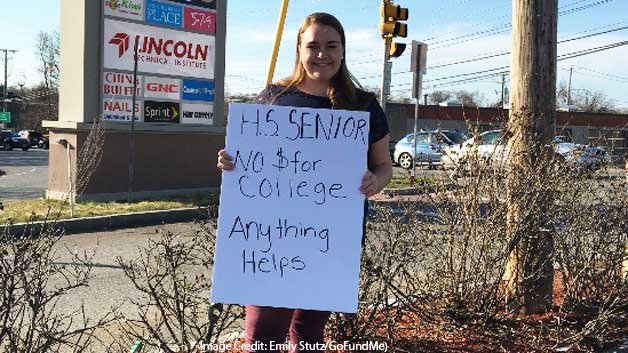 Kiwi
PLACE 5·7·9
LINCOLN
TECHNICAL INSTITUTE
CHINA
BUFFET
GNC
NAILS
Unlimited
Sprint
HAIR CUTTERY
H.S. SENIOR
NO $ for
College
Anything
Helps
(Image Credit: Emily Stutz/GoFundMe)